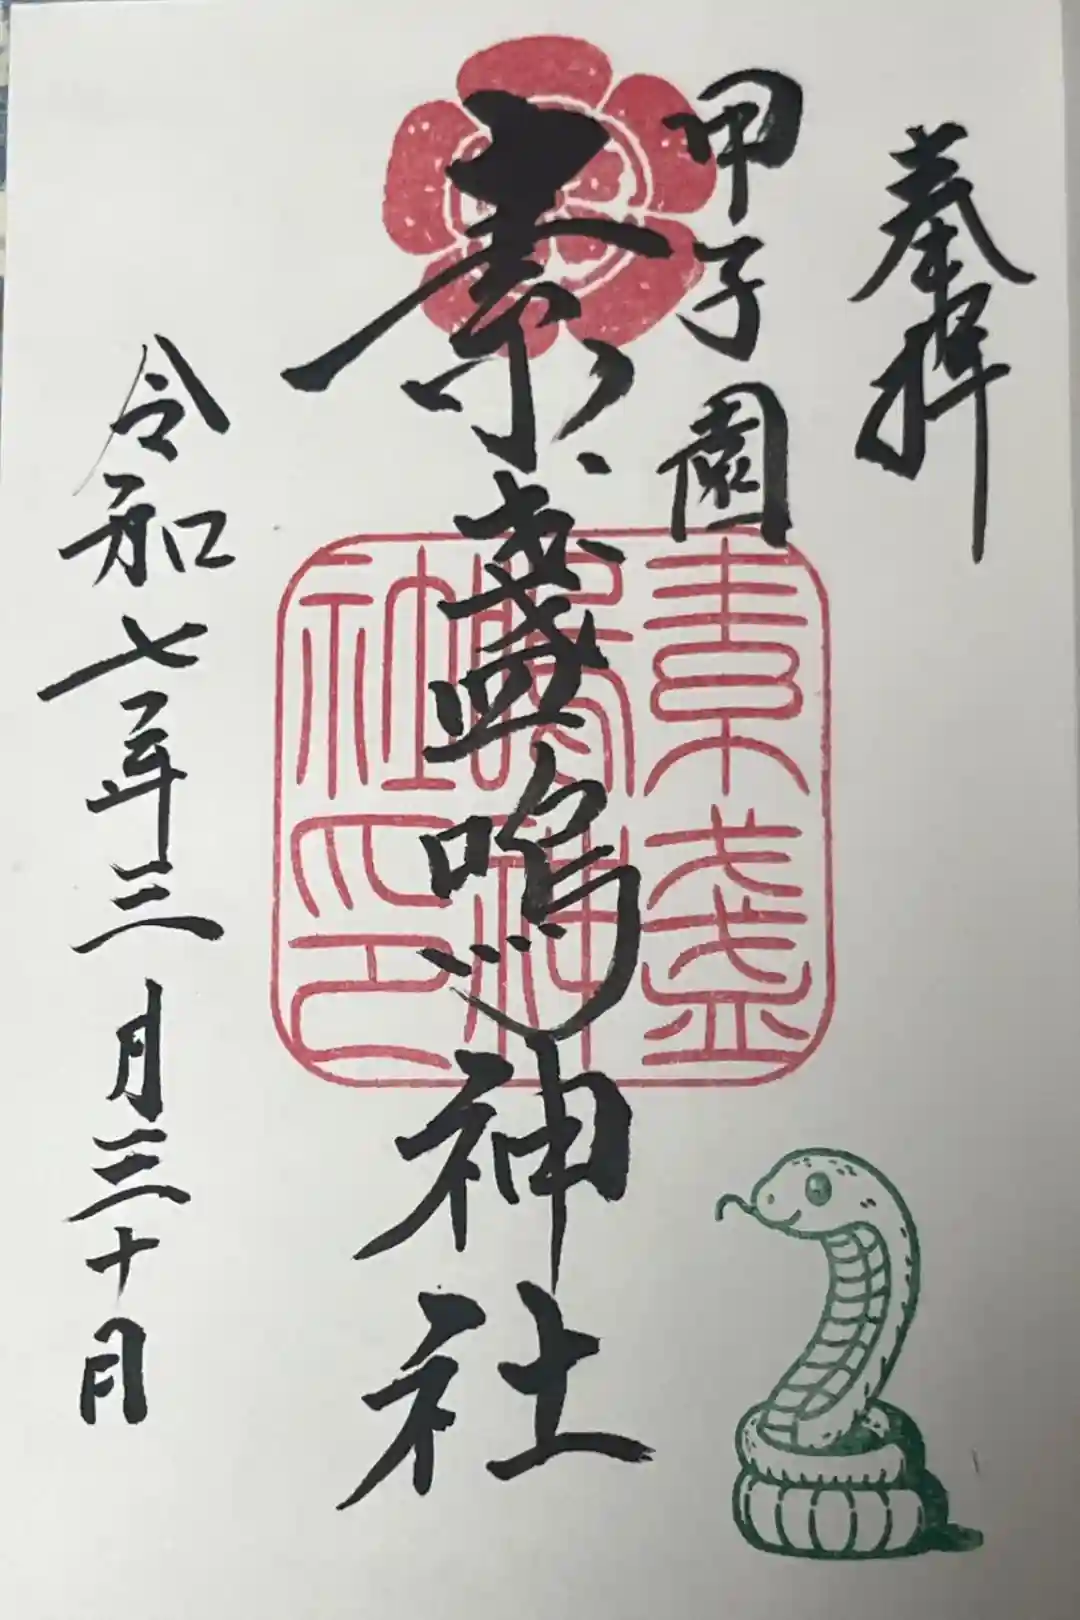 奉拝
甲子園
素盞嗚神社
素盞
嗚神
社印
令和七年三月三十日